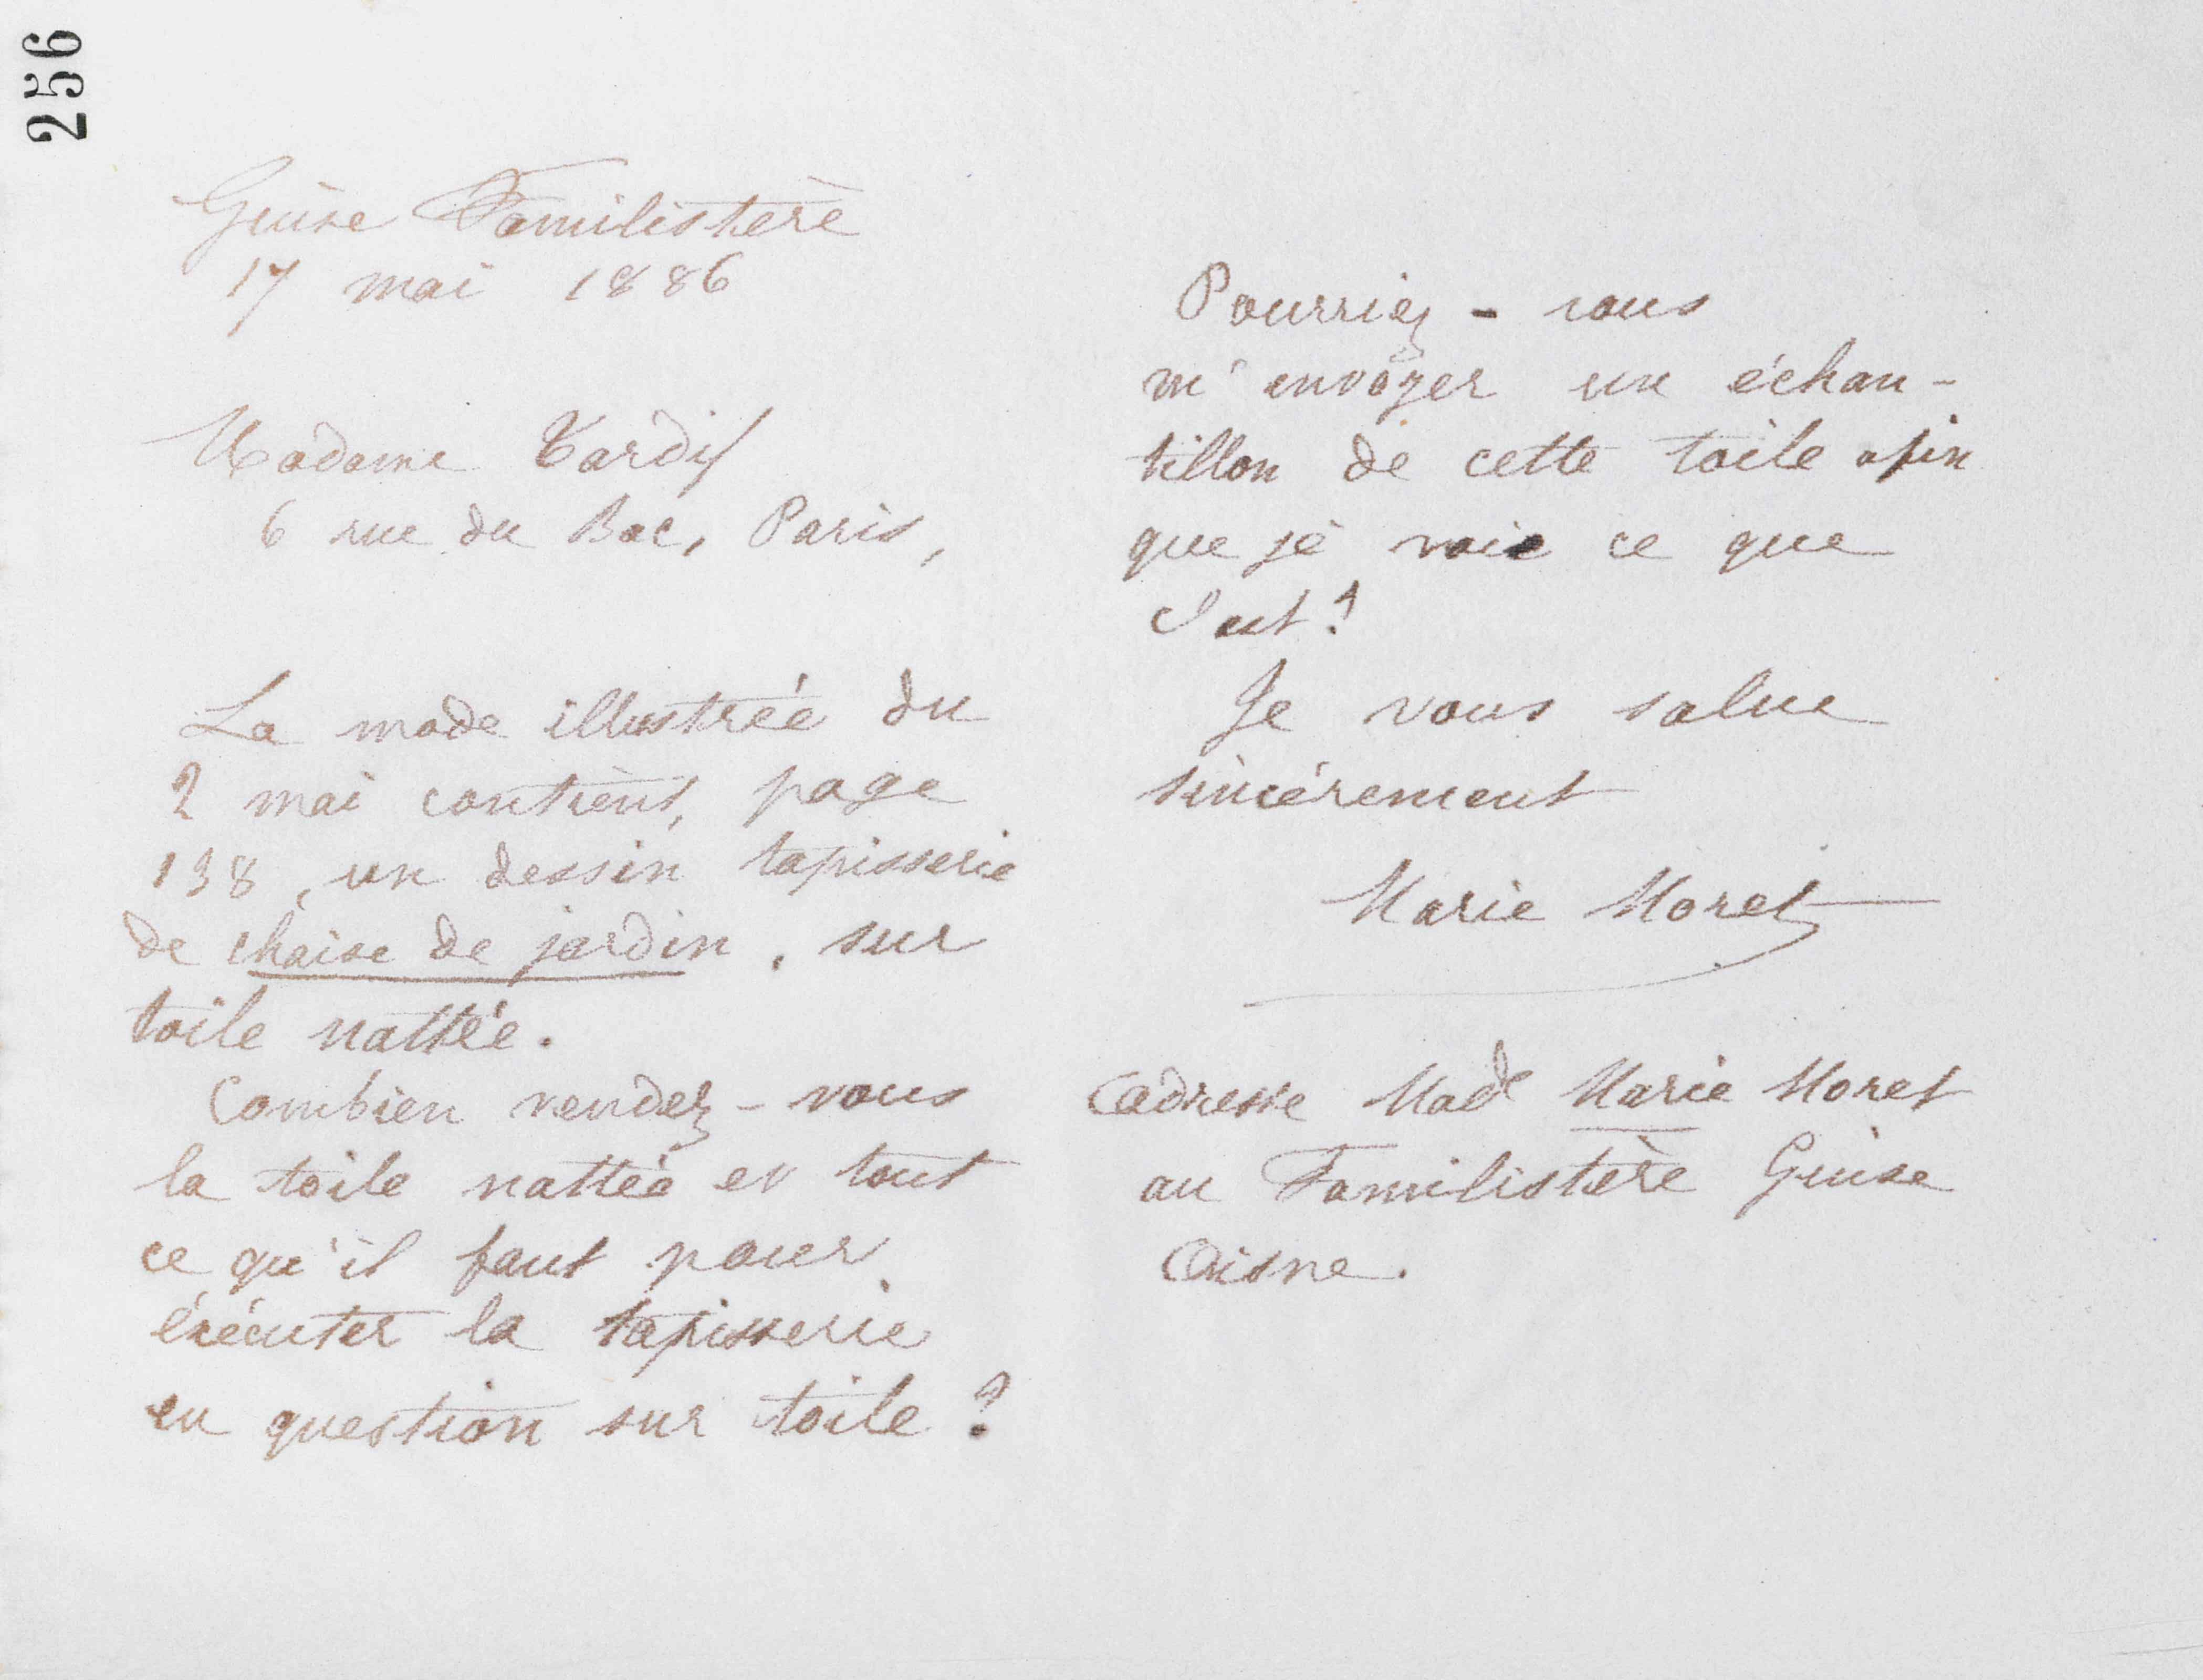 256
Guise Familistère
17 mai 1886
Madame Tardif
6 rue du Bac, Paris,
La mode illustrée du
2 mai contient, page
138, un dessin tapisserie
de chaise de jardin, sur
toile nattée.
Combien vendez-vous
la toile nattée et tout
ce qu'il faut pour
exécuter la tapisserie
en question sur toile ?
Pourriez-vous
m'envoyer un échan-
tillon de cette toile afin
que je voie ce que
c'est ?
Je vous salue
sincèrement
Marie Moret
Adresse Made Marie Moret
au Familistère Guise
Aisne.